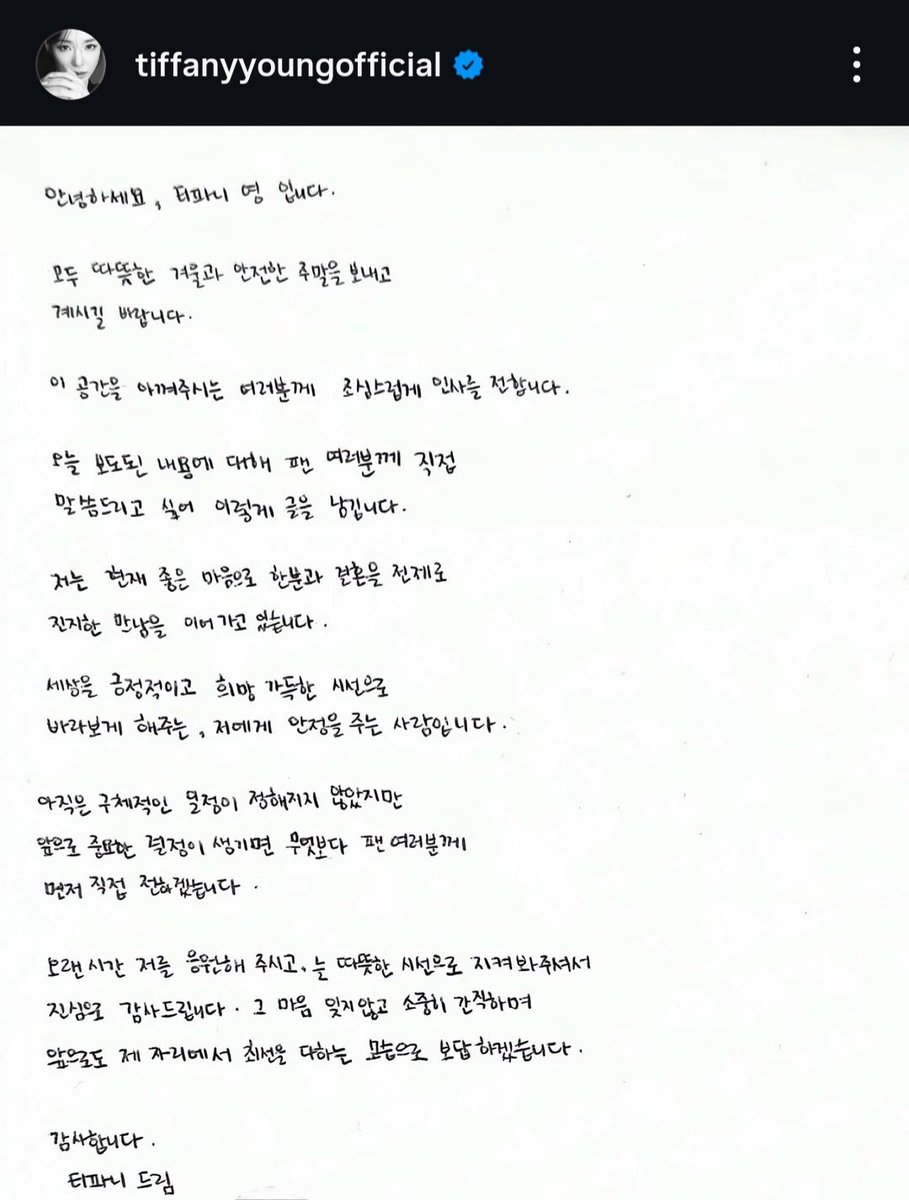 tiffanyyoungofficial
안녕하세요, 티파니 영 입니다.
모두 따뜻한 겨울과 안전한 주말을 보내고
계시길 바랍니다.
이 공간을 아껴주시는 여러분께 조심스럽게 인사를 전합니다.
오늘 보도된 내용에 대해 팬 여러분께 직접
말씀드리고 싶어 이렇게 글을 남깁니다.
저는 현재 좋은 마음으로 한분과 결혼을 전제로
진지한 만남을 이어 가고 있습니다.
세상을 긍정적이고 희망 가득한 시선으로
바라보게 해주는, 저에게 안정을 주는 사람입니다.
아직은 구체적인 일정이 정해지지 않았지만
앞으로 중요한 결정이 생기면 무엇보다 팬 여러분께
먼저 직접 전하겠습니다.
오랜 시간 저를 응원해 주시고, 늘 따뜻한 시선으로 지켜봐주셔서
진심으로 감사드립니다. 그 마음 잊지않고 소중히 간직하며
앞으로도 제 자리에서 최선을 다하는 모습으로 보답 하겠습니다.
감사합니다.
티파니 드림